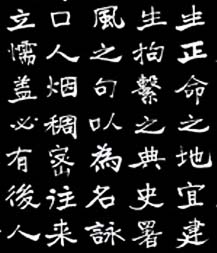 生正命之地宜建
生拘繫之典史署
風之句以為名詠
口人烟稠密往来
立懦盖必有後人